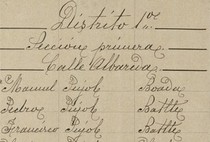 Distrito 1.or
Sección primera
Calle Albareda
Manuel Pujol Boada
Pedro Pujol Batlle
Francisco Pujol Batlle